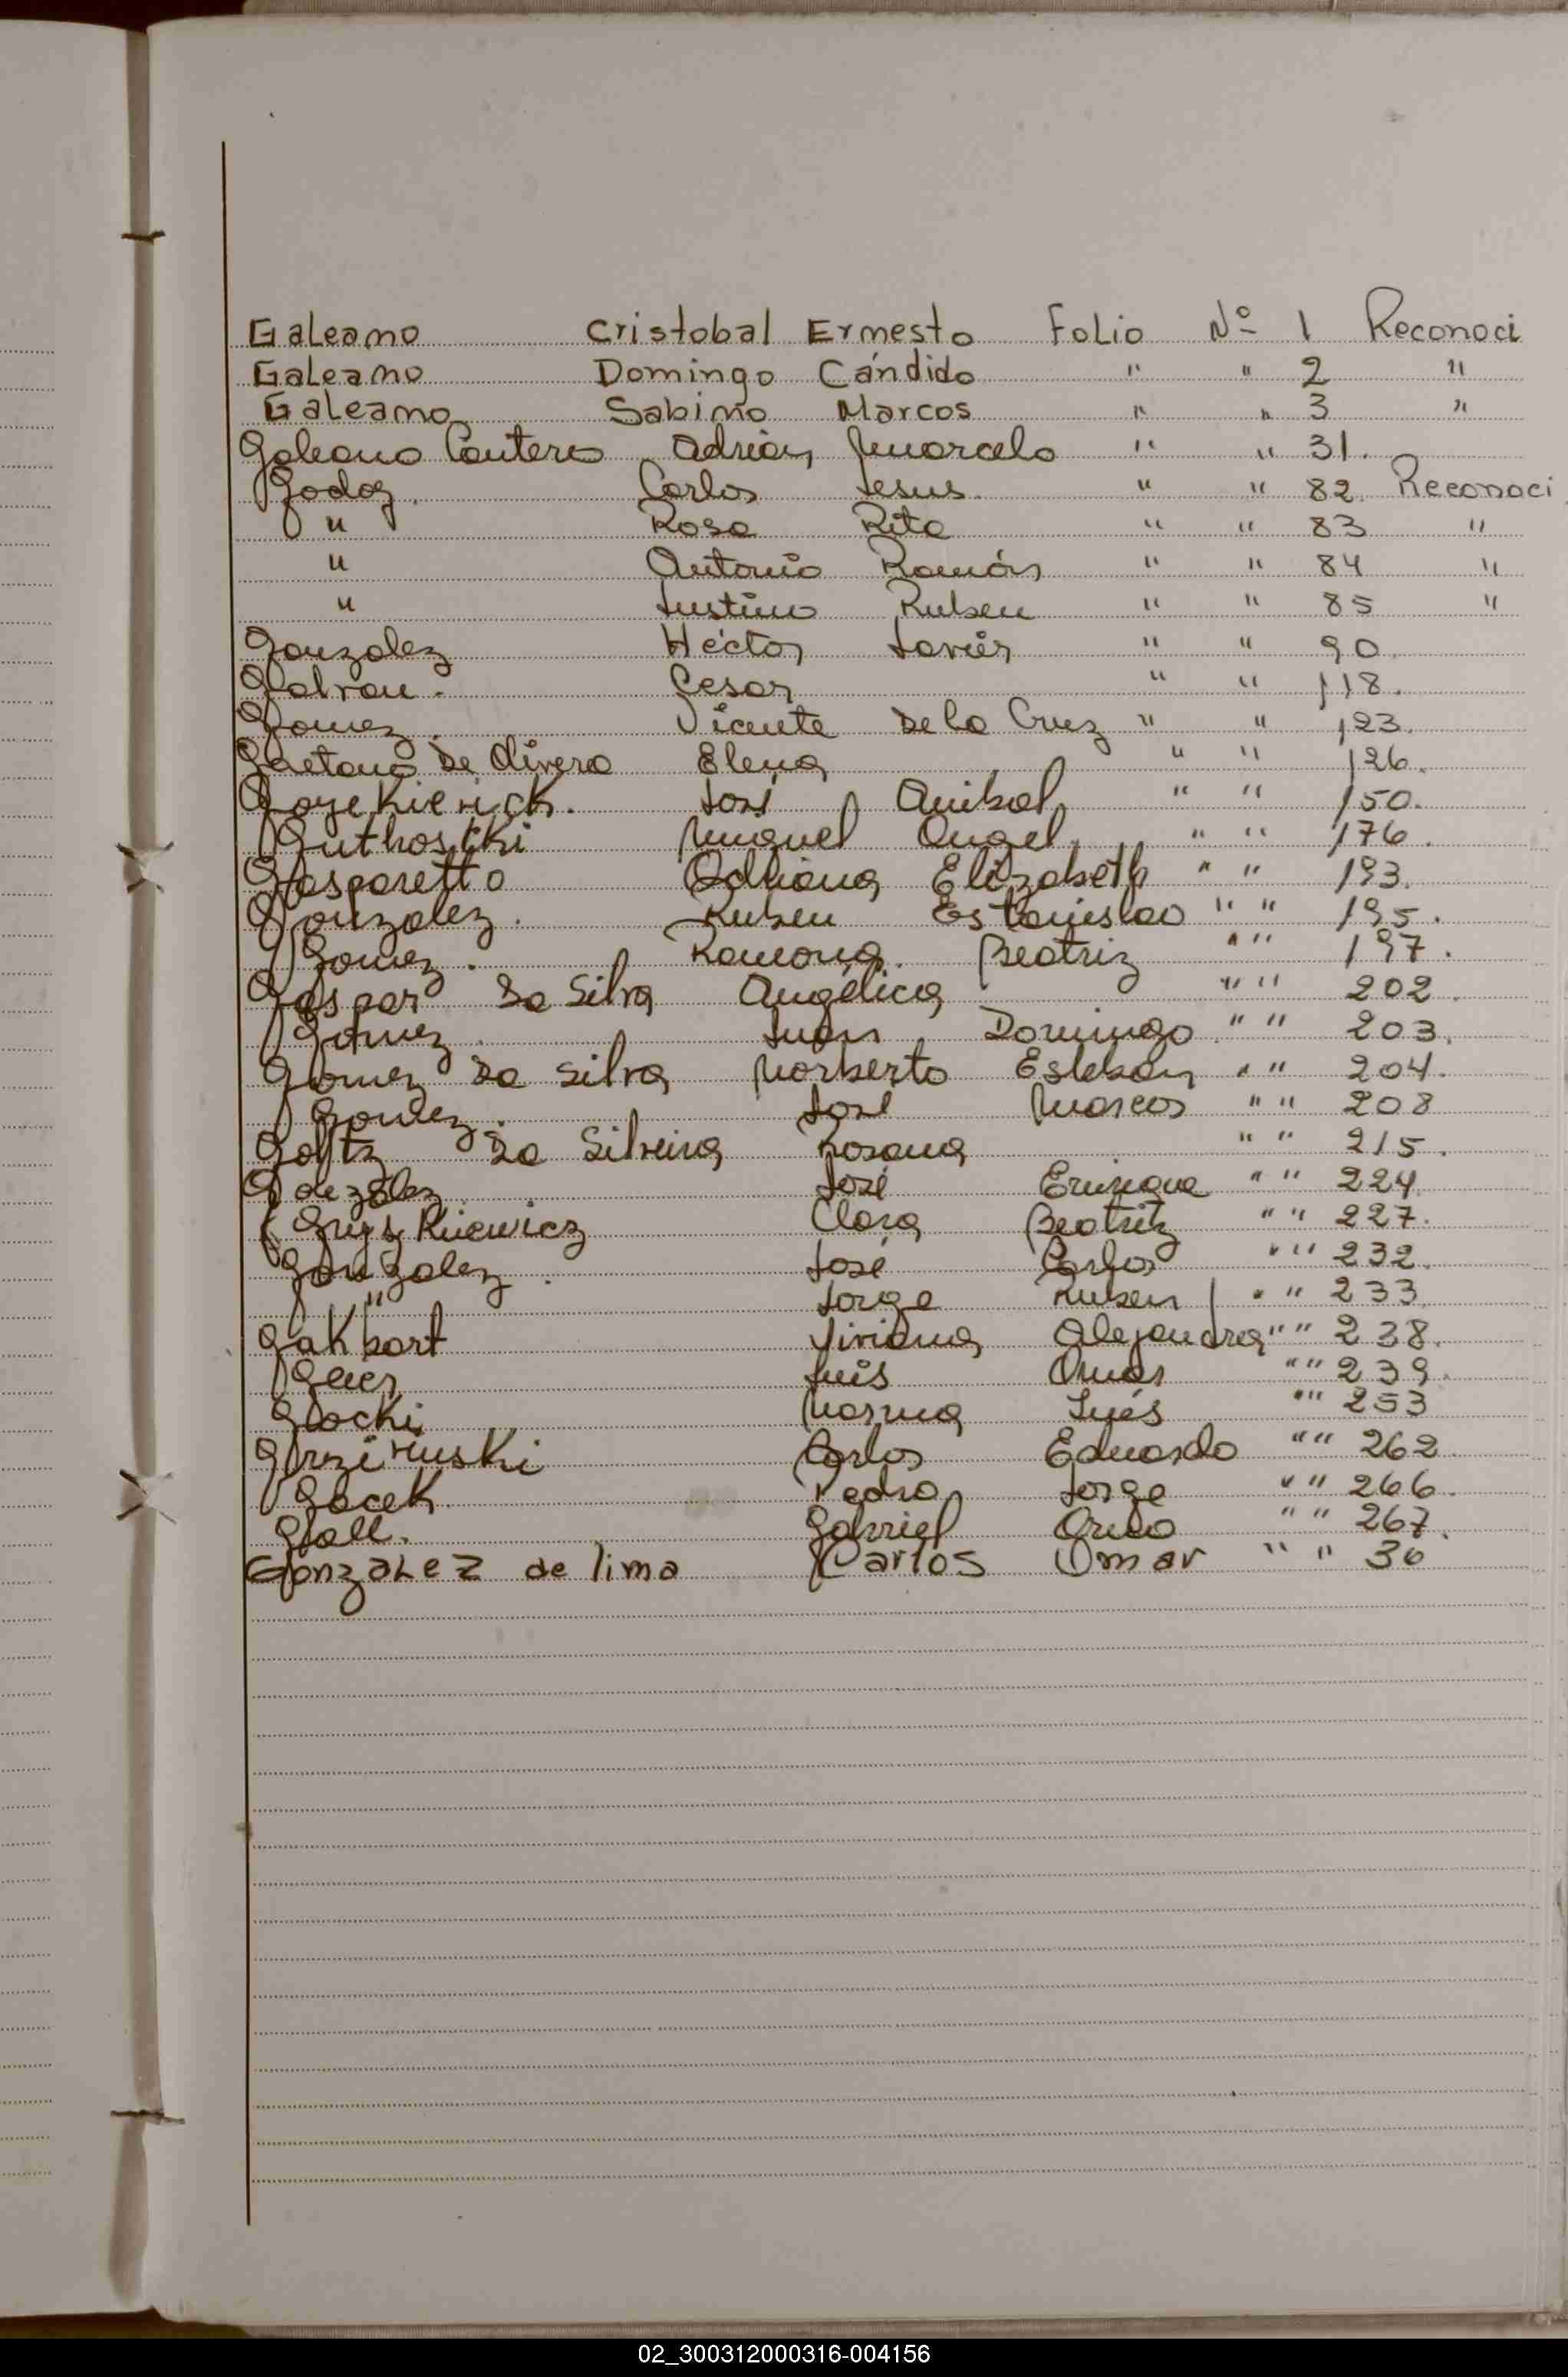 Galeano Cristobal Ernesto Folio Nº 1 Reconoci
Galeano Domingo Cándido " " 2 "
Galeano Sabino Marcos " " 3 "
Galeano Cantero Adrian Marcelo " " 31.
Godoy. Carlos Jesus. " " 82. Reconoci
" Rosa Rita " " 83 "
" Antonio Ramón " " 84 "
" Justino Ruben " " 85 "
Gonzalez Héctor Javier " " 90.
Galvan. Cesar " " 118.
Gomez. Vicente De la Cruz " " 123.
Gaetano De Olivera Elena " " 126.
José Anibal " " 150.
Miguel Angel. " " 176.
Gasparetto Adriana Elizabeth " " 193.
Gonzalez. Ruben Estanislao " " 195.
Gomez. Ramona. Beatriz " " 197.
Gaspar Da Silva Angélica " " 202.
Gomez. Juan Domingo. " " 203.
Gomez Da Silva Norberto Esteban " " 204.
Gomez. José Marcos " " 208
Goltz Da Silveira Rosana " " 215.
Gonzalez. José Enrique " " 224
Clara Beatriz " " 227.
Gonzalez. José Carlos " " 232.
" Jorge Ruben " " 233
Viviana Alejandra " " 238.
Luis Omar " " 239.
Glocki Norma Inés " " 253
Carlos Eduardo " " 262.
Gacek Pedro Jorge " " 266.
Gall. Gabriel " " 267.
Gonzalez de lima Carlos Omar " " 36
02_300312000316-004156